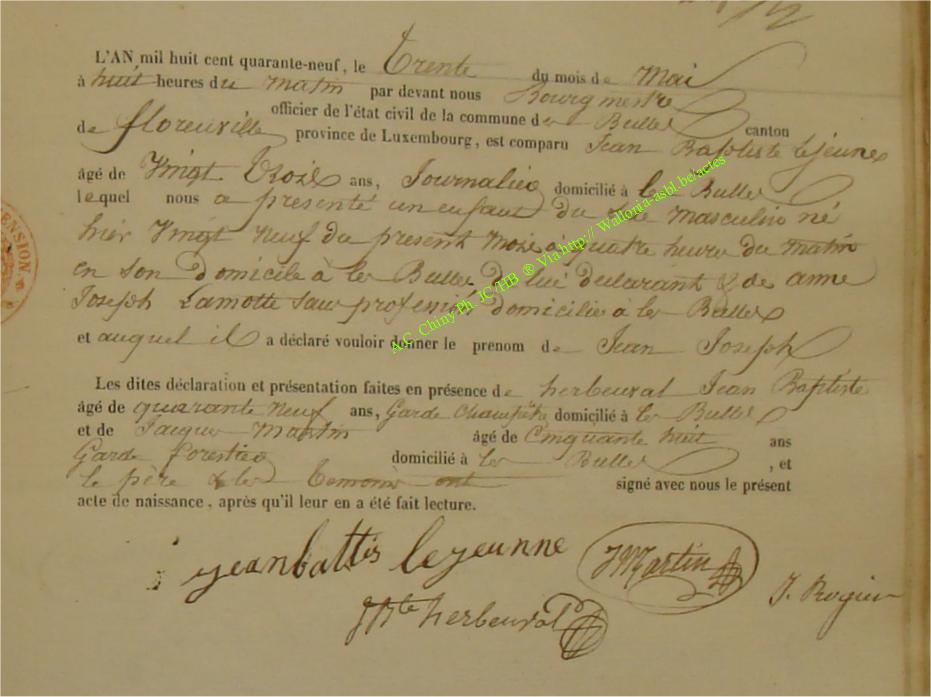 L'AN mil huit cent quarante-neuf, le Trente du mois de Mai
à huit heures du matin par devant nous Bourgmestre
officier de l'état civil de la commune des Bulles canton
de florenville province de Luxembourg, est comparu Jean Baptiste Lejeune
âgé de Vingt Trois ans, Journalier domicilié à les Bulles
lequel nous a presenté un enfant du sexe masculin né
hier Vingt Neuf du present Mois à quatre heure du matin
en son domicile à les Bulles de lui declarant & de anne
Joseph Lamotte sans profession domiciliée à les Bulles
et auquel il a déclaré vouloir donner le prenom de Jean Joseph
Les dites déclaration et présentation faites en présence de herbeuval Jean Baptiste
âgé de quarante neuf ans, Garde Champêtre domicilié à les Bulles
et de Jacques Martin âgé de Cinquante huit ans
Garde forestier domicilié à les Bulles , et
le père & les temoins ont signé avec nous le présent
acte de naissance, après qu'il leur en a été fait lecture.
jeanbattis lejeunne
JMartin
J. Rogier
JBte herbeuval
A.C. Chiny Ph JC/HB ® Via http:// Wallonia-asbl.be/actes
ENSION